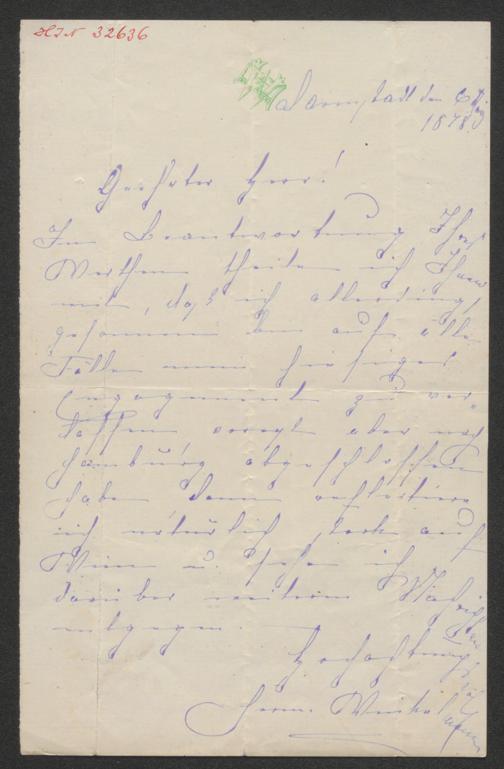 HIN 32636
Darmstadt den 6 Mai
1878.
Geehrter Herr!
In Beantwortung Ihres
Werthen theile ich Ihnen
mit, daß ich allerdings
gesonnen bin auf alle
Fälle mein hiesiges
Engagement zu ver-
lassen aber noch
Hamburg abgeschlossen
habe denn
ich natürlich stark auf
Wien u. sehe ich
darüber weitern Nachrichten
entgegen.
Hochachtungsvoll
Herm. Winkelmann